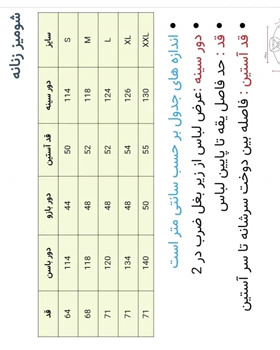 شومیز زنانه
سایز دور سینه قد آستین دور بازو دور باسن قد
S 114 50 44 114 64
M 118 52 48 118 68
L 124 52 48 120 71
XL 126 54 48 134 71
XXL 130 55 50 140 71
• اندازه های جدول بر حسب سانتی متر است
• دور سینه :عرض لباس از زیر بغل ضرب در 2
• قد : حد فاصل یقه تا پایین لباس
• قد آستین : فاصله بین دوخت سرشانه تا سر آستین